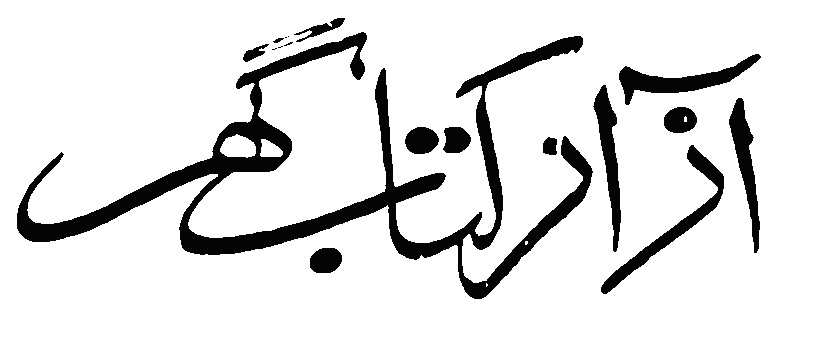 آزاد کتاب گھر